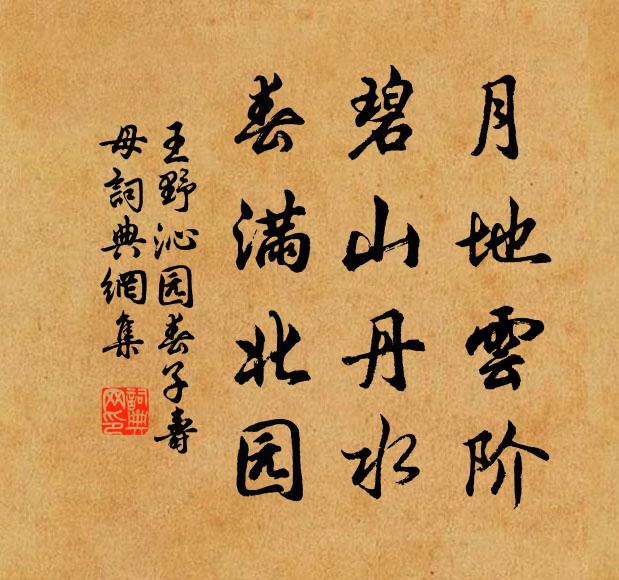 月地雲阶
碧山丹水
春滿北园
王野沁园春子壽
母詞典網集
詞典
网印